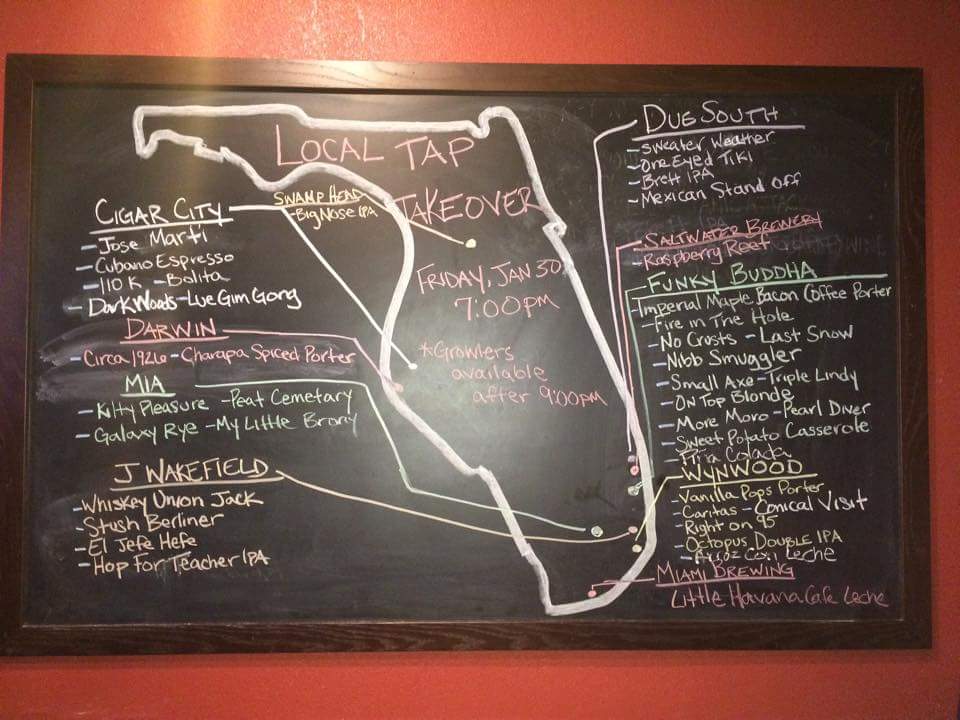 LOCAL TAP
TAKEOVER
FRIDAY, JAN 30
7:00PM
*Growlers
available
after 9:00PM
SWAMP HEAD
-Big Nose IPA
CIGAR CITY
- Jose Marti
- Cubano Espresso
- 110 K - Bolita
- Dark Woods - Lue Gim Gong
DARWIN
- Circa 1926 - Charapa Spiced Porter
MIA
- Kilty Pleasure - Peat Cemetary
- Galaxy Rye - My Little Brony
J WAKEFIELD
- Whiskey Union Jack
- Stush Berliner
- El Jefe Hefe
- Hop for Teacher IPA
DUE SOUTH
- Sweater Weather
- One Eyed Tiki
- Brett IPA
- Mexican Stand Off
SALTWATER BREWERY
- Raspberry Reef
FUNKY BUDDHA
- Imperial Maple Bacon Coffee Porter
- Fire in The Hole
- No Crusts - Last Snow
- Nibb Smuggler
- Small Axe - Triple Lindy
- On Top Blonde
- More Moro - Pearl Diver
- Sweet Potato Casserole
- Piña Colada
WYNWOOD
- Vanilla Pops Porter
- Caritas - Conical Visit
- Right on 95
- Octopus Double IPA
- Arroz Con Leche
MIAMI BREWING
Little Havana Cafe Leche